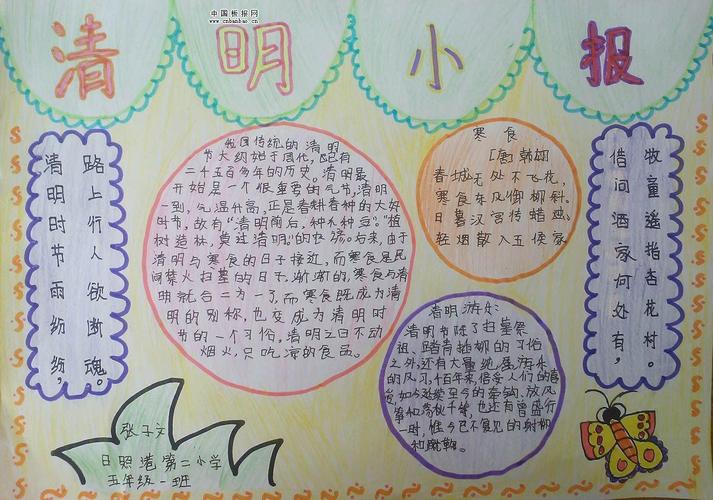 中国板报网
www.cnbanbao.cn
清明小报
清明时节雨纷纷，
路上行人欲断魂。
我国传统的清明
节大约始于周代，已有
二千五百多年的历史。清明最
开始是一个很重要的气节，清明
一到，气温升高，正是春耕春种的大好
时节，故有“清明前后，种瓜种豆”。“植
树造林，莫过清明”的农谚。后来，由于
清明与寒食的日子接近，而寒食是民
间禁火扫墓的日子，渐渐的，寒食与清
明就合二为一了，而寒食既成为清
明的别称，也变成为清明时
节的一个习俗，清明之日不动
烟火，只吃凉的食品。
寒食
[唐]韩翃
春城无处不飞花，
寒食东风御柳斜。
日暮汉宫传蜡烛，
轻烟散入五侯家
清明
清明节除了扫墓祭
祖、踏青插柳的习俗
之外，还有大量
的风习，千百年来，倍受人们的喜
爱，如今延续至今的牵钩、放风
筝和荡秋千等，也还有曾盛行
一时，惟今已不复见的射柳
和蹴鞠。
借问酒家何处有，
牧童遥指杏花村。
张子文
日照港第二小学
五年级一班